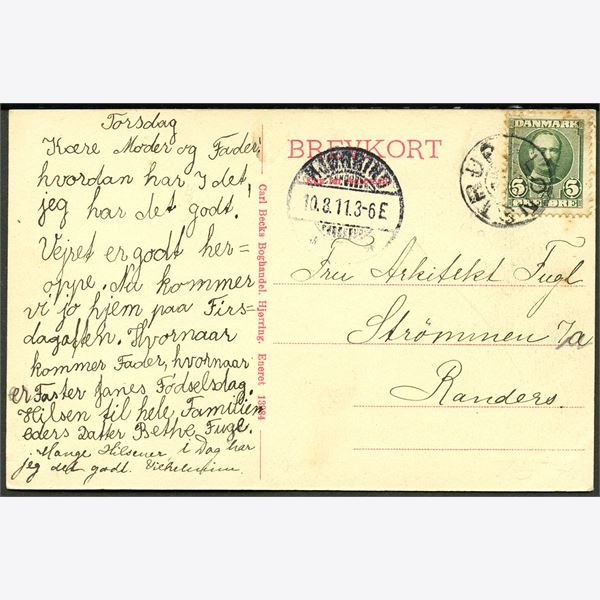 Torsdag
Kære Moder og Fader,
hvordan har I det,
jeg har det godt!
Vejret er godt her=
oppe. Nu kommer
vi jo hjem paa Firs=
dagaften. Hvornaar
kommer Fader, hvornaar
er Faster Janes Fødselsdag.
Hilsen til hele Familien
eders Datter Bethe Fugl.
Mange Hilsener i Dag har
jeg det godt. Vilhelmine.
Carl Becks Boghandel. Hjørring. Eneret 13924
BREVKORT
HJØRRING
10.8.11.3-6 E
TRUP
DANMARK
5 5
ØRE
Fru Arkitekt Fugl
Strömmen 7a
Randers.